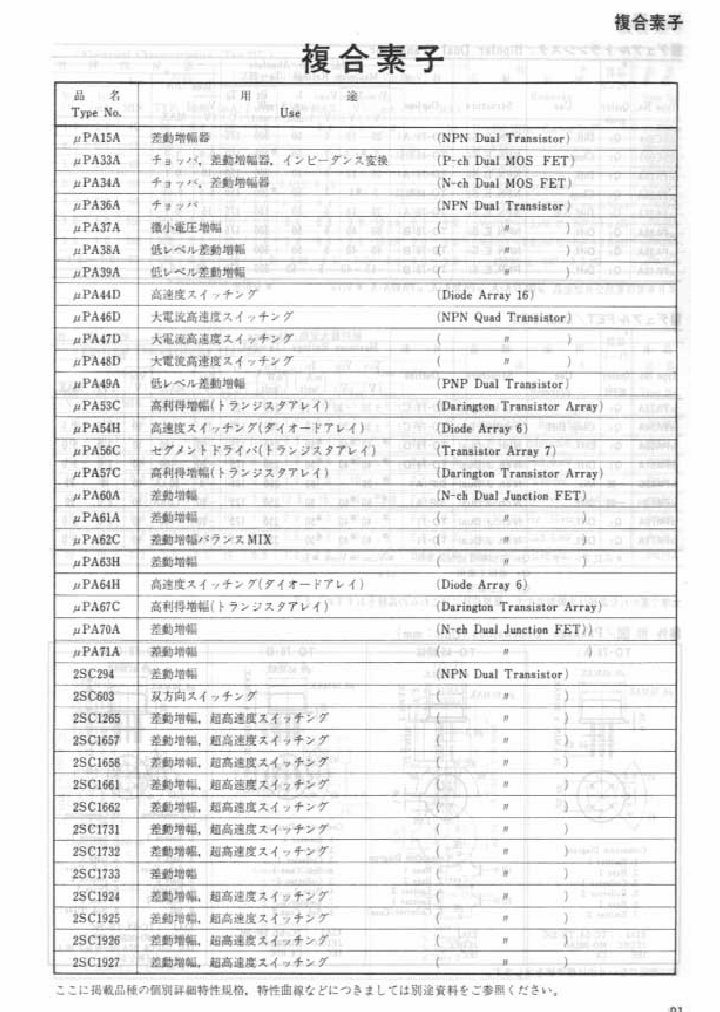 複合素子
複合素子
品 名 用 途
Type No. Use
μPA15A 差動増幅器 (NPN Dual Transistor)
μPA33A チョッパ，差動増幅器，インピーダンス変換 (P-ch Dual MOS FET)
μPA34A チョッパ，差動増幅器 (N-ch Dual MOS FET)
μPA36A チョッパ (NPN Dual Transistor)
μPA37A 微小電圧増幅 ( 〃 )
μPA38A 低レベル差動増幅 ( 〃 )
μPA39A 低レベル差動増幅 ( 〃 )
μPA44D 高速度スイッチング (Diode Array 16)
μPA46D 大電流高速度スイッチング (NPN Quad Transistor)
μPA47D 大電流高速度スイッチング ( 〃 )
μPA48D 大電流高速度スイッチング ( 〃 )
μPA49A 低レベル差動増幅 (PNP Dual Transistor)
μPA53C 高利得増幅(トランジスタアレイ) (Darington Transistor Array)
μPA54H 高速度スイッチング(ダイオードアレイ) (Diode Array 6)
μPA56C セグメントドライバ(トランジスタアレイ) (Transistor Array 7)
μPA57C 高利得増幅(トランジスタアレイ) (Darington Transistor Array)
μPA60A 差動増幅 (N-ch Dual Junction FET)
μPA61A 差動増幅 ( 〃 )
μPA62C 差動増幅バランスMIX ( 〃 )
μPA63H 差動増幅 ( 〃 )
μPA64H 高速度スイッチング(ダイオードアレイ) (Diode Array 6)
μPA67C 高利得増幅(トランジスタアレイ) (Darington Transistor Array)
μPA70A 差動増幅 (N-ch Dual Junction FET))
μPA71A 差動増幅 ( 〃 )
2SC294 差動増幅 (NPN Dual Transistor)
2SC603 双方向スイッチング ( 〃 )
2SC1265 差動増幅，超高速度スイッチング ( 〃 )
2SC1657 差動増幅，超高速度スイッチング ( 〃 )
2SC1658 差動増幅，超高速度スイッチング ( 〃 )
2SC1661 差動増幅，超高速度スイッチング ( 〃 )
2SC1662 差動増幅，超高速度スイッチング ( 〃 )
2SC1731 差動増幅，超高速度スイッチング ( 〃 )
2SC1732 差動増幅，超高速度スイッチング ( 〃 )
2SC1733 差動増幅 ( 〃 )
2SC1924 差動増幅，超高速度スイッチング ( 〃 )
2SC1925 差動増幅，超高速度スイッチング ( 〃 )
2SC1926 差動増幅，超高速度スイッチング ( 〃 )
2SC1927 差動増幅，超高速度スイッチング ( 〃 )
ここに掲載品種の個別詳細特性規格，特性曲線などにつきましては別途資料をご参照ください。